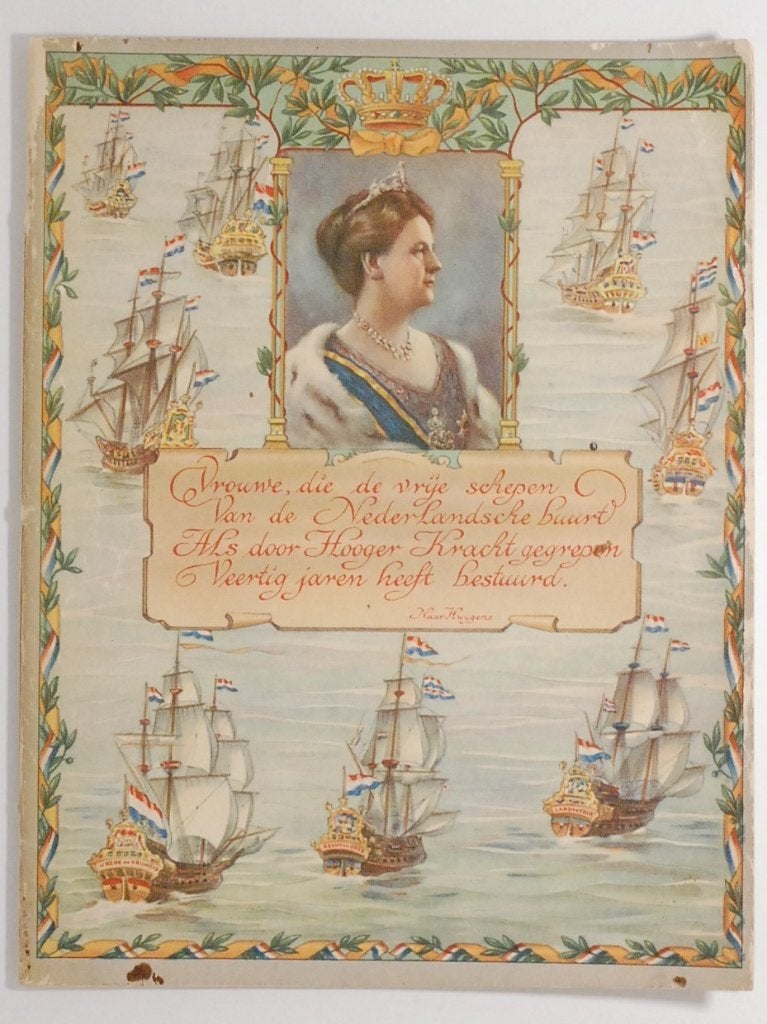 Vrouwe, die de vrije schepen
Van de Nederlandsche buurt
Als door Hooger Kracht gegrepen
Veertig jaren heeft bestuurd.
Naar Huygens